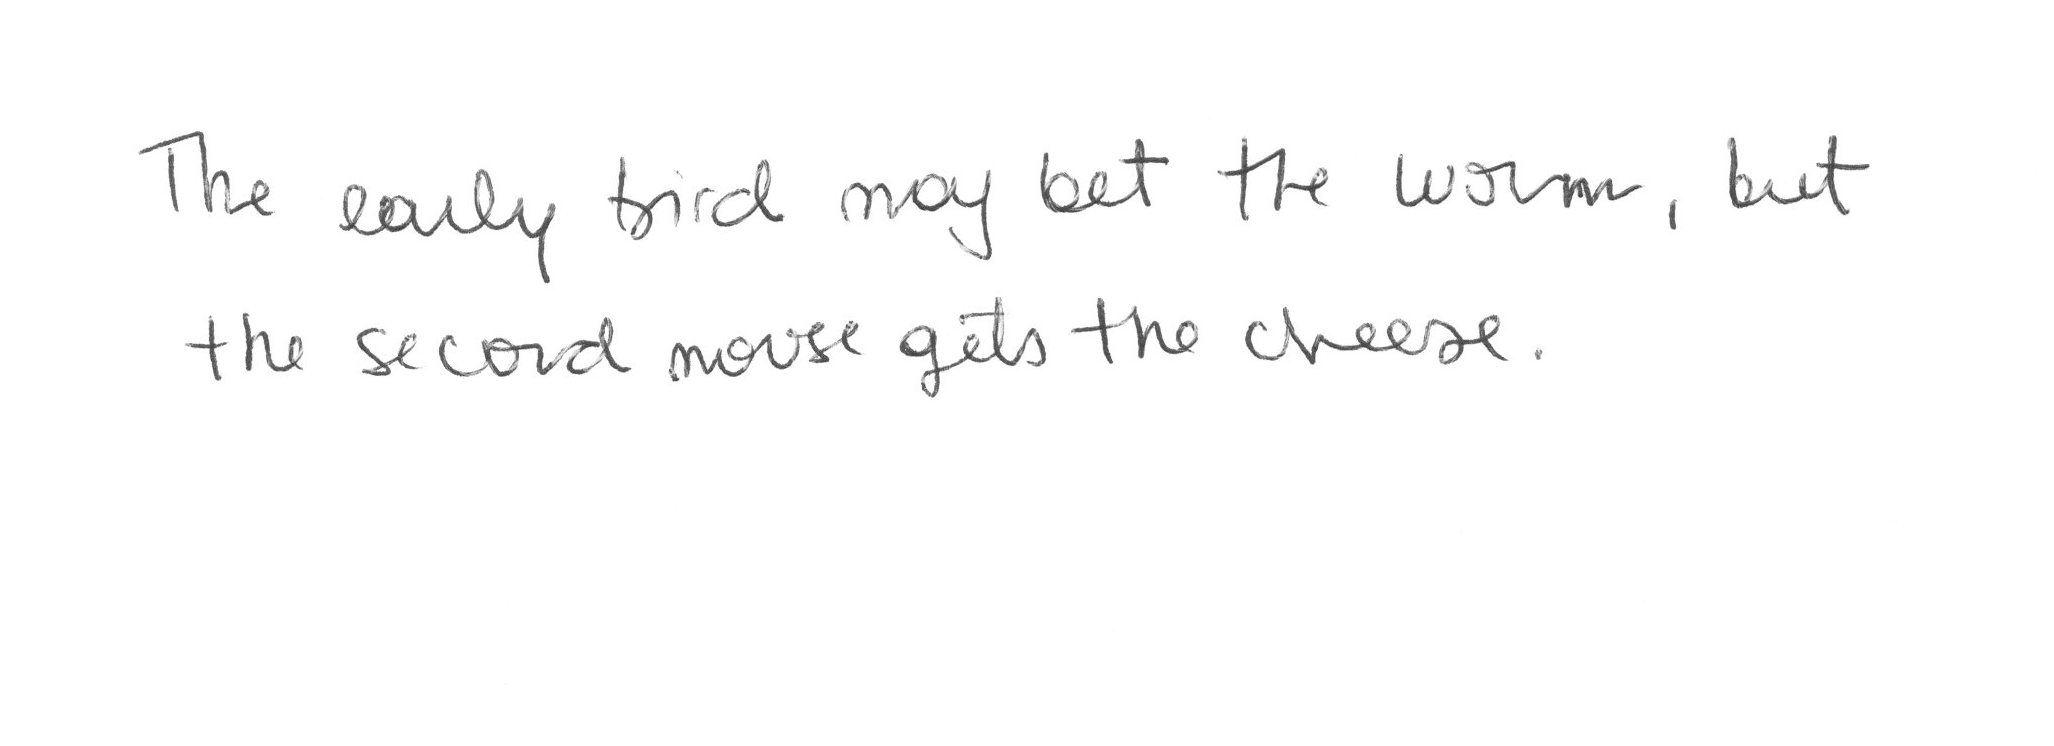 The early bird may bet the worm, but
the second mouse gets the cheese.